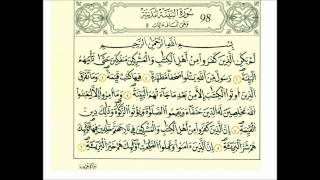 سُورَةُ الْبَيِّنَةِ مَدَنِيَّةٌ 98
بِسْمِ اللَّهِ الرَّحْمَٰنِ الرَّحِيمِ
لَمْ يَكُنِ الَّذِينَ كَفَرُوا مِنْ أَهْلِ الْكِتَٰبِ وَالْمُشْرِكِينَ مُنفَكِّينَ حَتَّىٰ تَأْتِيَهُمُ
الْبَيِّنَةُ رَسُولٌ مِّنَ اللَّهِ يَتْلُوا صُحُفًا مُّطَهَّرَةً فِيهَا كُتُبٌ قَيِّمَةٌ وَمَا تَفَرَّقَ
الَّذِينَ أُوتُوا الْكِتَٰبَ إِلَّا مِنۢ بَعْدِ مَا جَاءَتْهُمُ الْبَيِّنَةُ وَمَا أُمِرُوا إِلَّا لِيَعْبُدُوا
اللَّهَ مُخْلِصِينَ لَهُ الدِّينَ حُنَفَاءَ وَيُقِيمُوا الصَّلَوٰةَ وَيُؤْتُوا الزَّكَوٰةَ وَذَٰلِكَ دِينُ
الْقَيِّمَةِ إِنَّ الَّذِينَ كَفَرُوا مِنْ أَهْلِ الْكِتَٰبِ وَالْمُشْرِكِينَ فِي نَارِ جَهَنَّمَ خَٰلِدِينَ فِيهَا أُولَٰئِكَ
هُمْ شَرُّ الْبَرِيَّةِ إِنَّ الَّذِينَ ءَامَنُوا وَعَمِلُوا الصَّٰلِحَٰتِ أُولَٰئِكَ هُمْ خَيْرُ الْبَرِيَّةِ